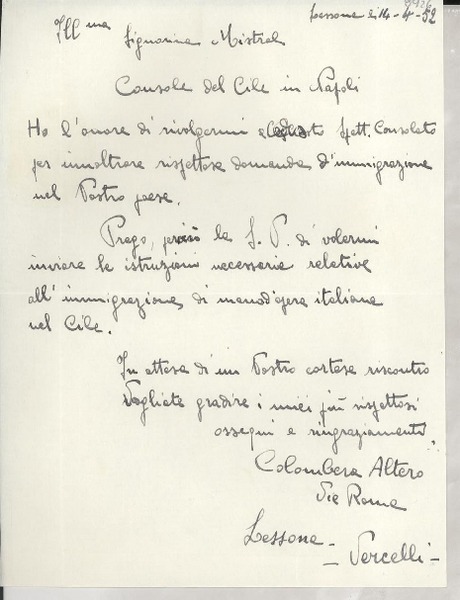 Lessona li 14-4-52
Ill ma
Signorina Mistral
Console del Cile in Napoli
Ho l'onore di rivolgermi a Spett. Consolato
per innoltrare rispettosa domanda d'immigrazione
nel Vostro paese.
Prego, perciò la S. V. di volermi
inviare le istruzioni necessarie relative
all'immigrazione di manod'opera italiana
nel Cile.
In attesa di un Vostro cortese riscontro
Vogliate gradire i miei più rispettosi
ossequi e ringraziamenti.
Colombera Altero
Via Roma
Lessona -
- Vercelli -